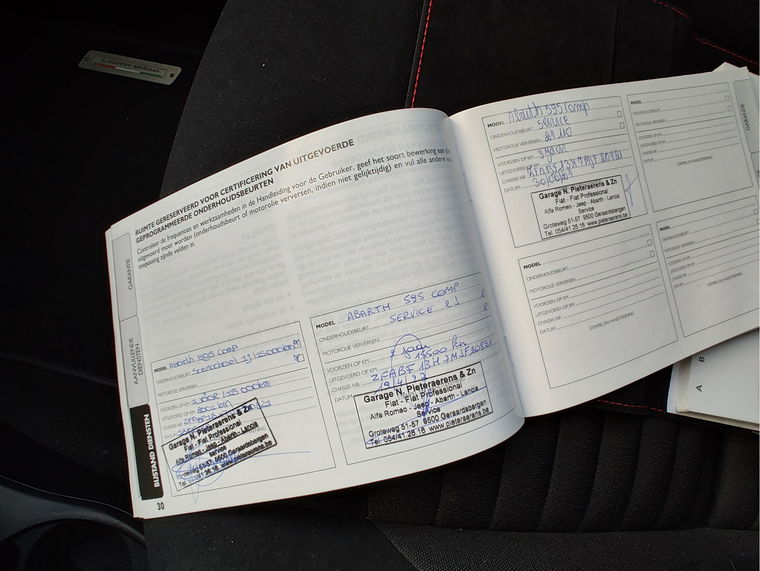 RUIMTE GERESERVEERD VOOR CERTIFICERING VAN UITGEVOERDE
GEPROGRAMMEERDE ONDERHOUDSBEURTEN
Controleer de frequenties en werkzaamheden in de Handleiding voor de Gebruiker, geef het soort bewerking aan die
uitgevoerd moet worden (onderhoudsbeurt of motorolie verversen, indien niet gelijktijdig) en vul alle andere van
toepassing zijnde velden in.
GARANTIE
AANVULLENDE
DIENSTEN
BIJSTAND DIENSTEN
MODEL Abarth 595 comp
ONDERHOUDSBEURT
MOTOROLIE VERVERSEN
VOORZIEN OP KM
UITGEVOERD OP KM
CHASSIS NR.
DATUM
Garage N. Pieteraerens & Zn
Fiat - Fiat Professional
Alfa Romeo - Jeep - Abarth - Lancia
Service
Groteweg 51-57 9500 Geraardsbergen
Tel. 054/41 26 16 www.pieteraerens.be
30
MODEL ABARTH 595 COMP
ONDERHOUDSBEURT SERVICE 2J
MOTOROLIE VERVERSEN
VOORZIEN OP KM
UITGEVOERD OP KM
CHASSIS NR.
DATUM 19/4/22
Garage N. Pieteraerens & Zn
Fiat - Fiat Professional
Alfa Romeo - Jeep - Abarth - Lancia
Service
Groteweg 51-57 9500 Geraardsbergen
Tel. 054/41 26 16 www.pieteraerens.be
MODEL Abarth 595 comp
ONDERHOUDSBEURT Service
MOTOROLIE VERVERSEN
VOORZIEN OP KM
UITGEVOERD OP KM
CHASSIS NR.
DATUM
Garage N. Pieteraerens & Zn
Fiat - Fiat Professional
Alfa Romeo - Jeep - Abarth - Lancia
Service
Groteweg 51-57 9500 Geraardsbergen
Tel. 054/41 26 16 www.pieteraerens.be
MODEL
ONDERHOUDSBEURT
MOTOROLIE VERVERSEN
VOORZIEN OP KM
UITGEVOERD OP KM
CHASSIS NR.
DATUM
STEMPEL EN HANDTEKENING
MODEL
ONDERHOUDSBEURT
MOTOROLIE VERVERSEN
VOORZIEN OP KM
UITGEVOERD OP KM
CHASSIS NR.
DATUM
STEMPEL EN HANDTEKENING
MODEL
ONDERHOUDSBEURT
MOTOROLIE VERVERSEN
VOORZIEN OP KM
UITGEVOERD OP KM
CHASSIS NR.
DATUM
STEMPEL EN HANDTEKENING
GARANTIE
A
B